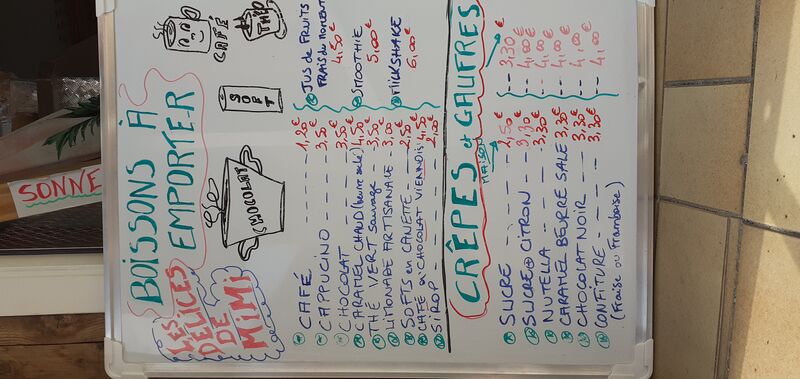 BOISSONS À
EMPORTER
LES
DÉLICES
DE
MIMI
CHOCOLAT
SOFT
CAFÉ
THÉ
SONNE
CAFÉ ---- 1,20€
CAPPUCINO --- 3,50€
CHOCOLAT ---- 3,50€
CARAMEL CHAUD (beurre salé) 4,50€
THÉ VERT sauvage -- 3,50€
LIMONADE ARTISANALE - 3,00€
SOFTS en CANETTE -- 2,50€
CAFÉ ou CHOCOLAT VIENNOIS 4,50€
SIROP ---- 2,00€
JUS de FRUITS
FRAIS du MOMENT
4,50€
SMOOTHIE
5,00€
MILKSHAKE
6,00€
CRÊPES et GAUFRES
MAISON
SUCRE ---- 2,50€ --- 3,30€
SUCRE + CITRON - 3,30€ --- 4,00€
NUTELLA ---- 3,30€ --- 4,00€
CARAMEL BEURRE SALÉ 3,30€ --- 4,00€
CHOCOLAT NOIR -- 3,30€ --- 4,00€
CONFITURE --- 3,30€ --- 4,00€
(Fraise ou Framboise)